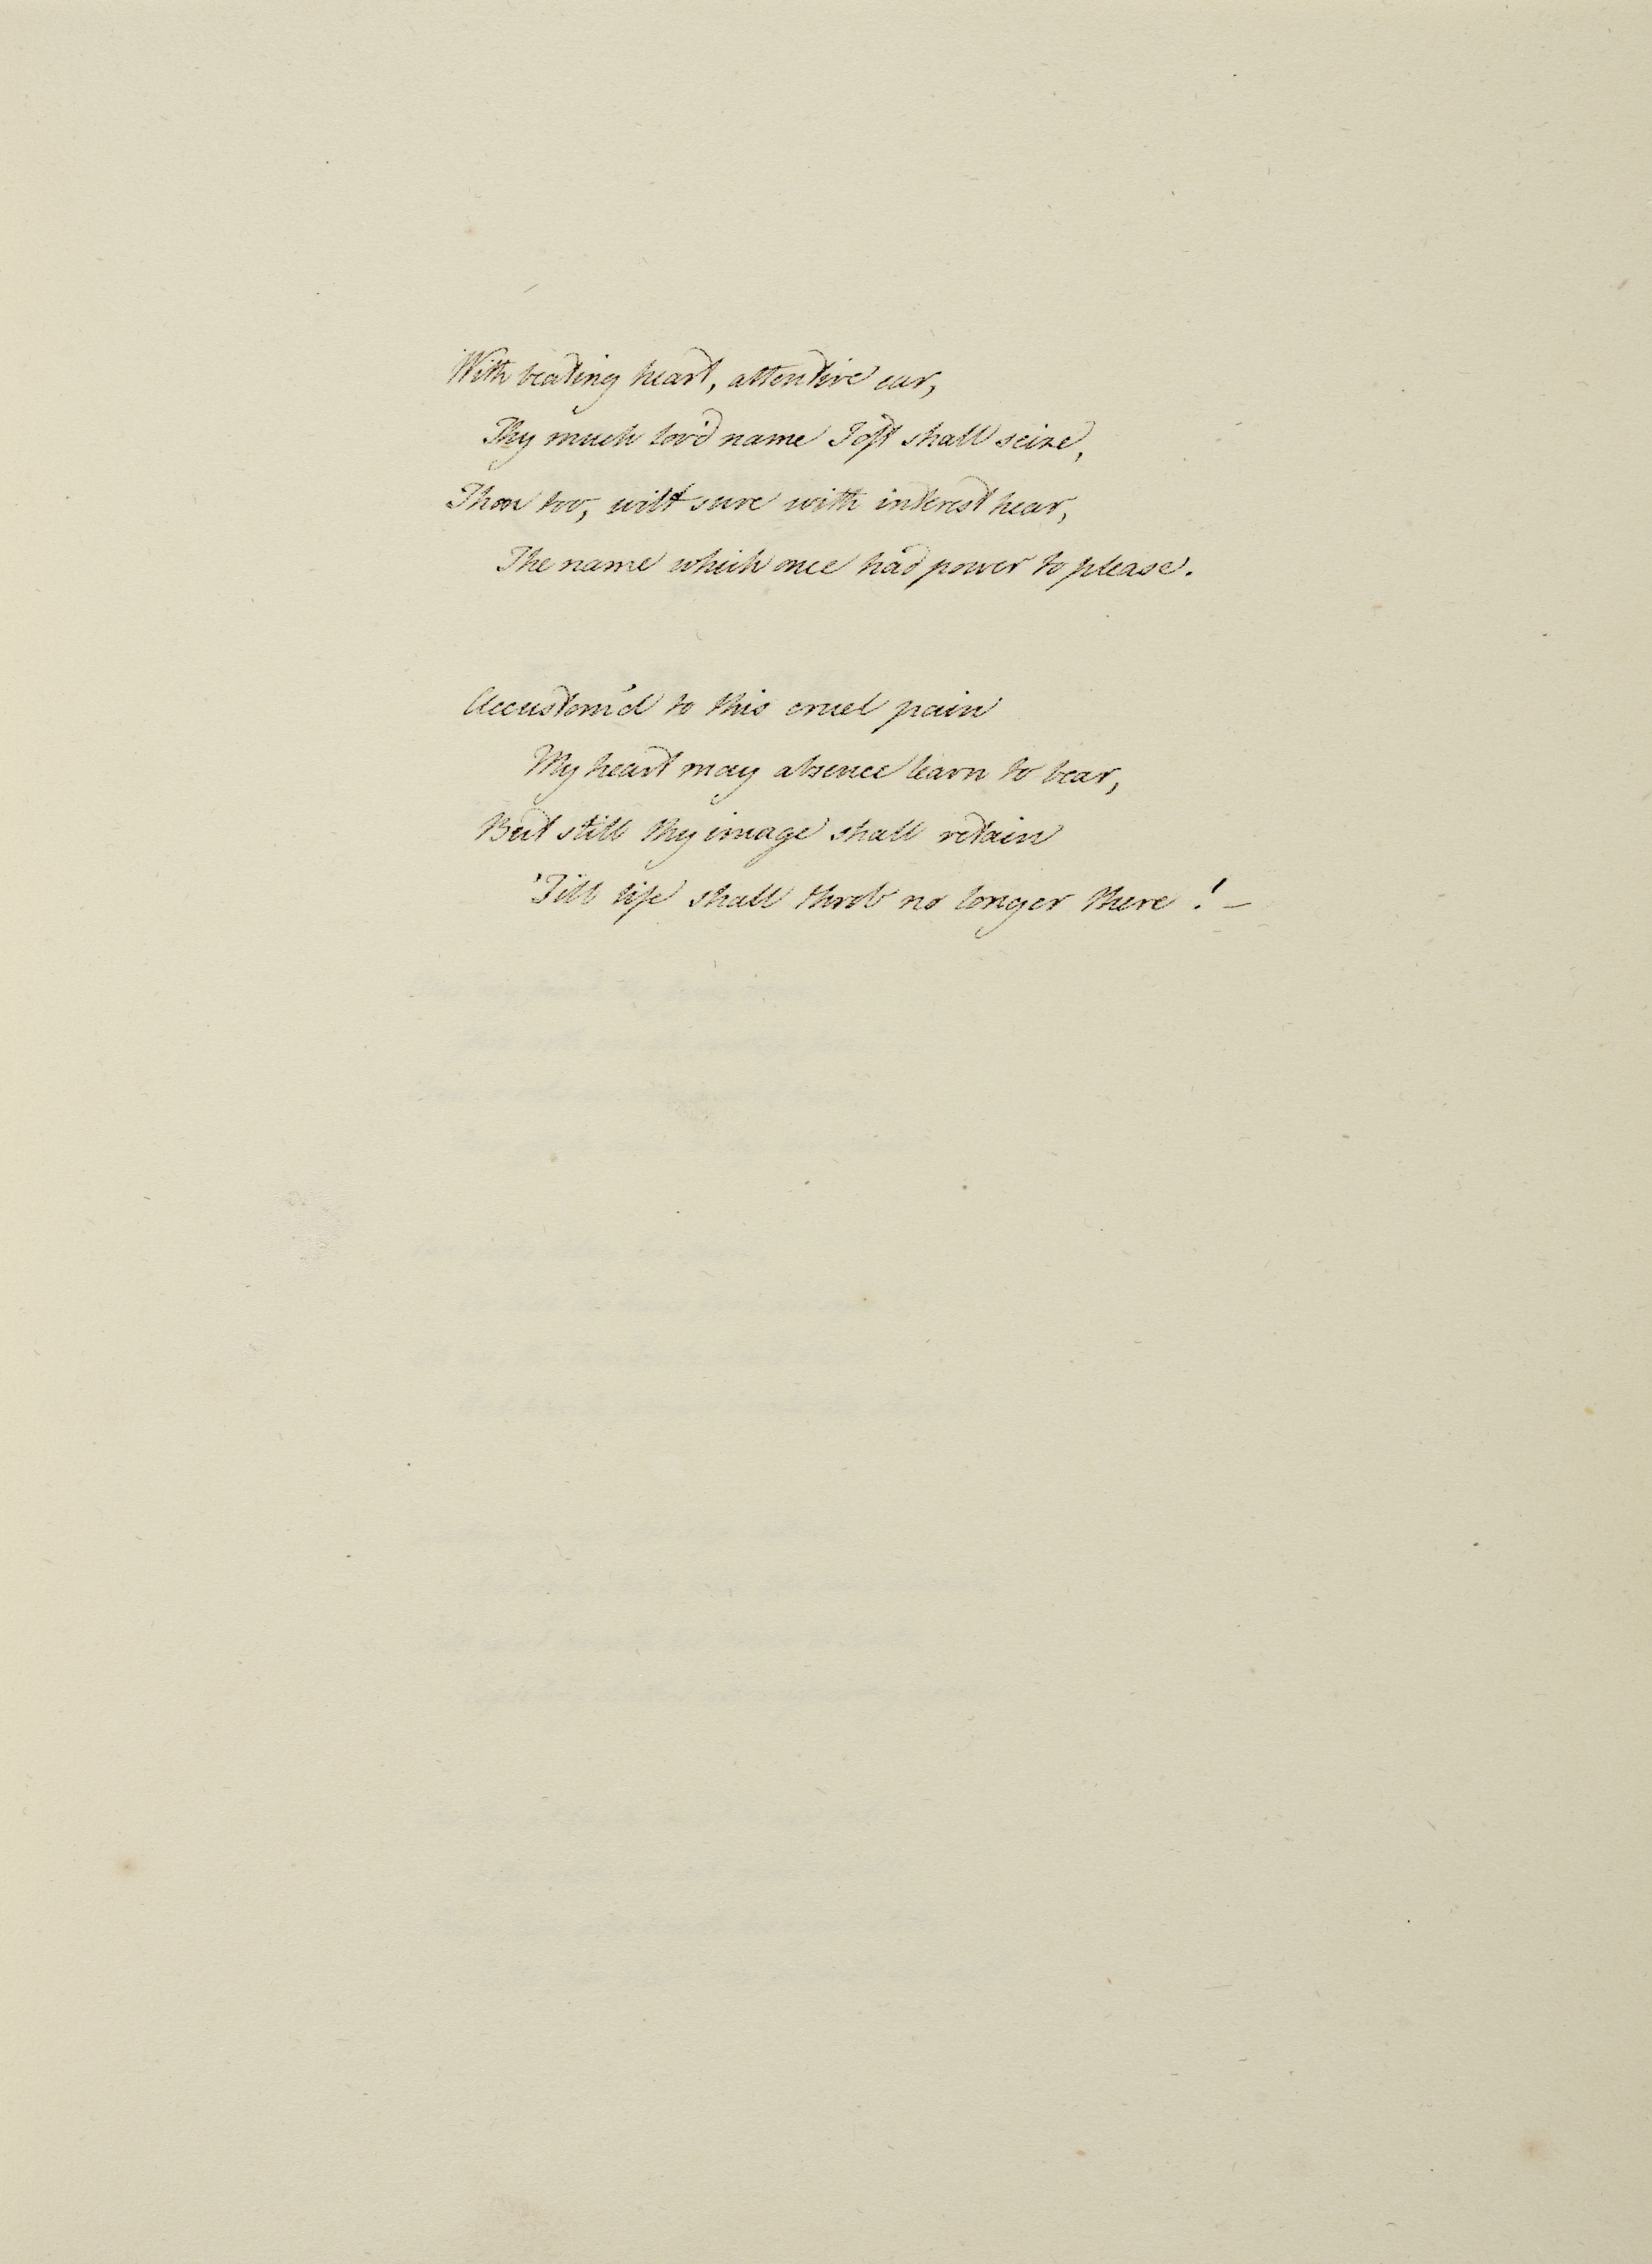 With beating heart, attentive ear,
Thy much lov'd name I oft shall seize,
Thou too, wilt sure with interest hear,
The name which once had power to please.
Accustom'd to this cruel pain
My heart may absence learn to bear,
But still thy image shall retain
'Till life shall throb no longer there! –